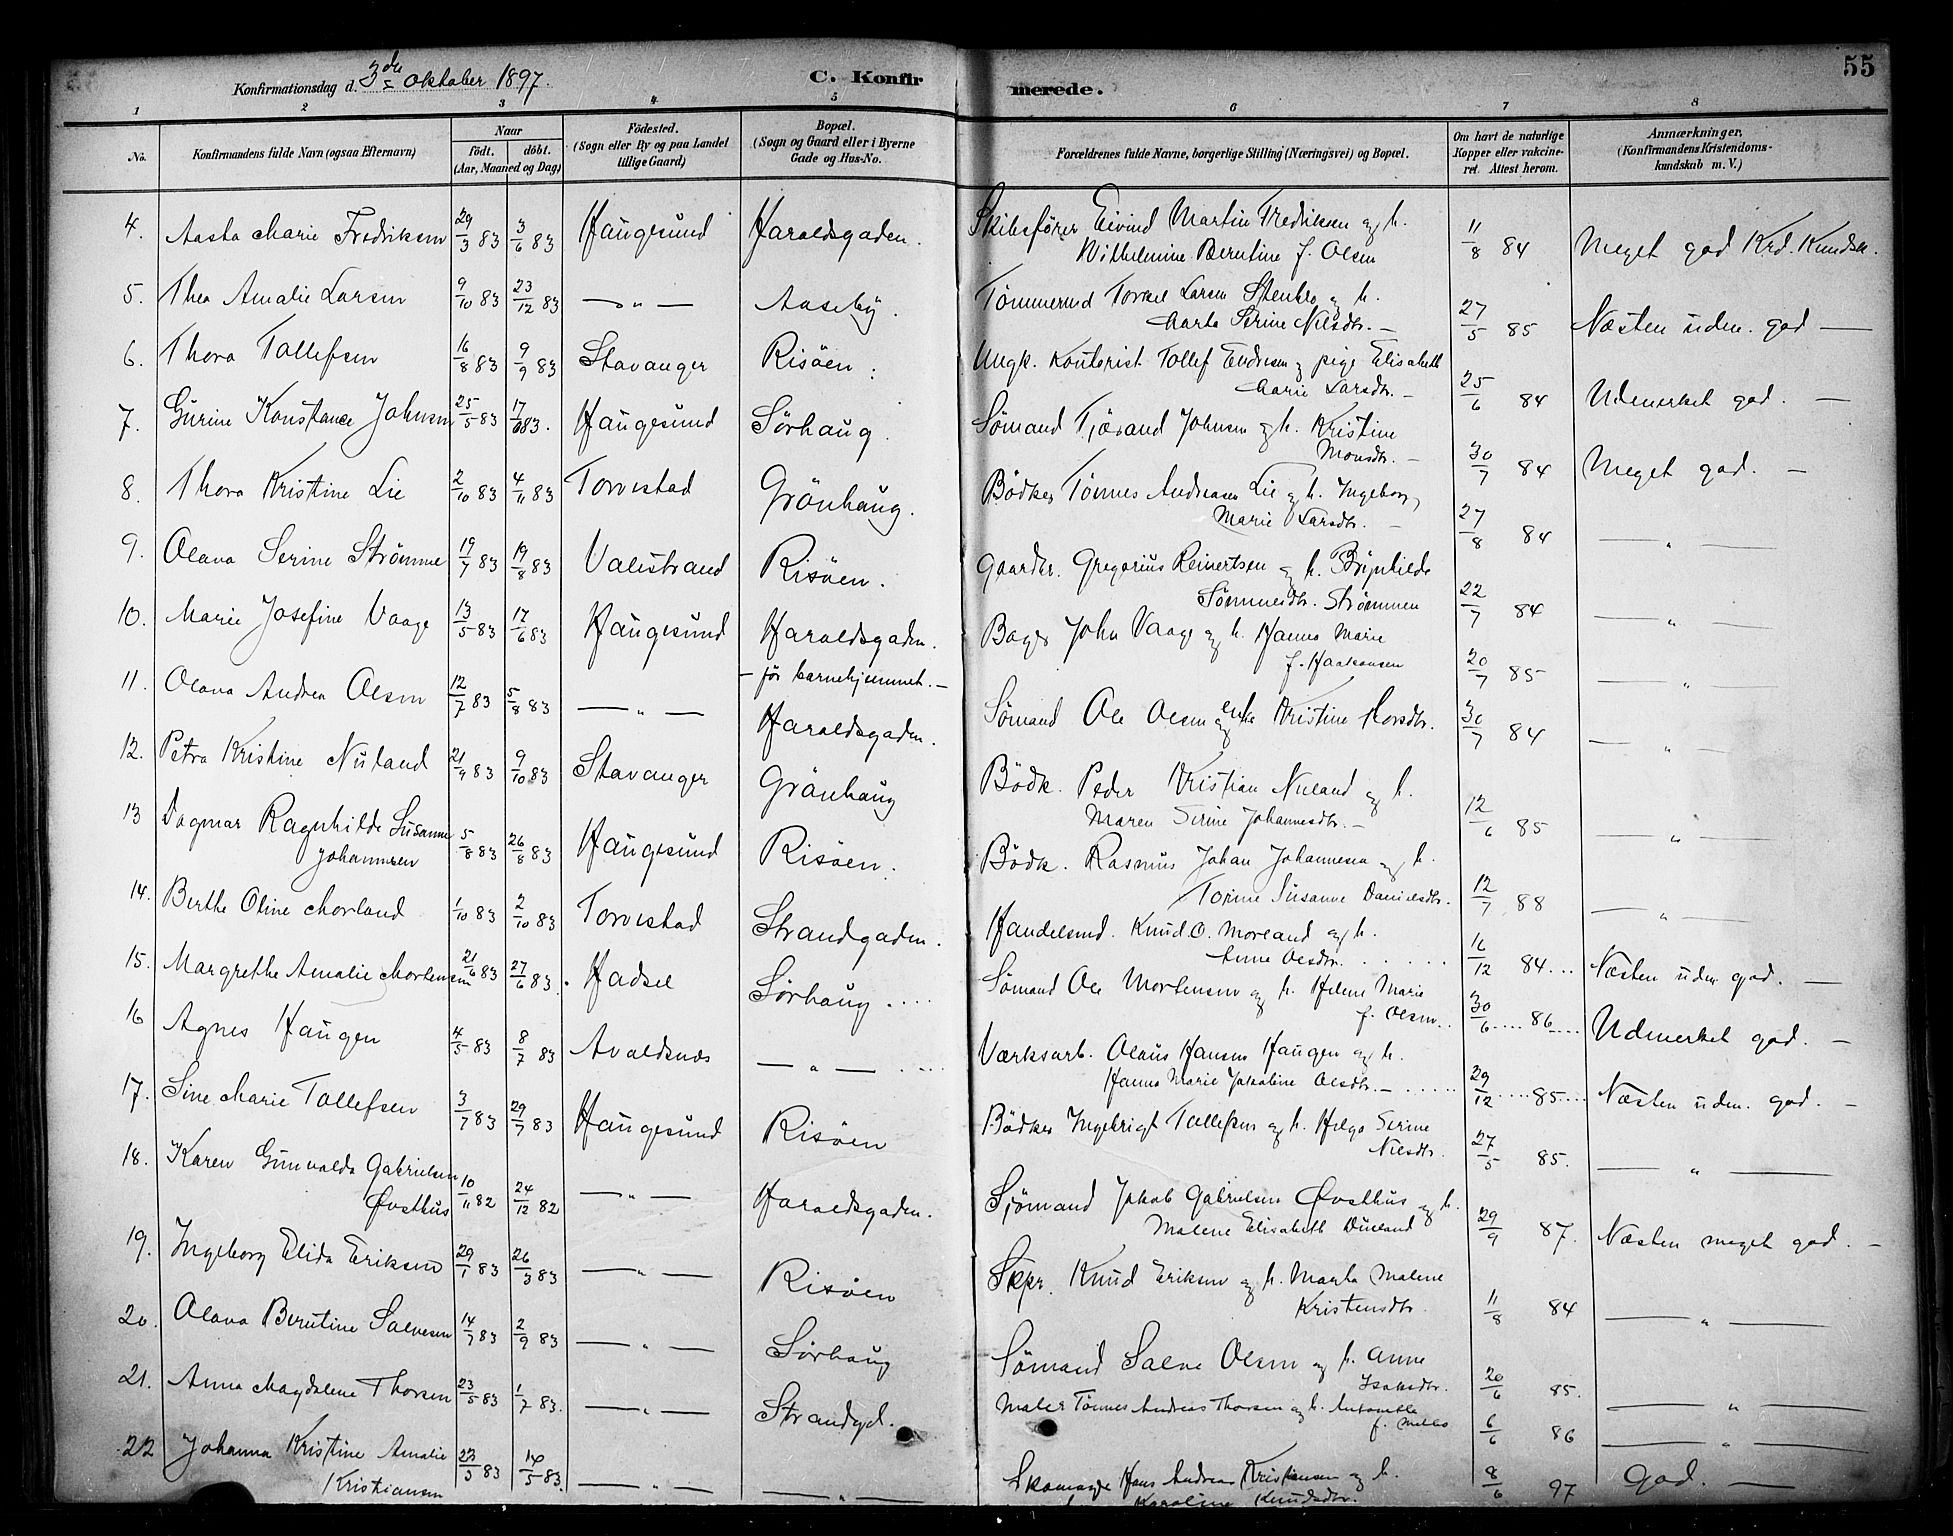 Konfirmationsdag d. 3die Oktober 1897. C. Konfirmerede. 55
1 2 3 4 5 6 7 8
No. Konfirmandens fulde Navn (ogsaa Efternavn) Naar födt. döbt. (Aar, Maaned og Dag) Födested. (Sogn eller By og paa Landet tillige Gaard) Bopæl. (Sogn og Gaard eller i Byerne Gade og Hus-No. Forældrenes fulde Navne, borgerlige Stilling (Næringsvei) og Bopæl. Om havt de naturlige Kopper eller vakcineret. Attest herom. Anmærkninger, (Konfirmandens Kristendomskundskab m. V.)
4. Aasta Marie Fredriksen 29/3 83 3/6 83 Haugesund Haraldsgaden. Skibsfører Eivind Martin Fredriksen og h.
Wilhelmine Berntine f. Olsen 11/8 84 Meget god Krd. Kundsk.
5. Thea Amalie Larsen 9/10 83 23/12 83 — „ — Aaseby. Tömmermd Torkel Larsen Stenbro og h.
Marta Serine Nilsdtr. — 27/5 85 Næsten udm. god —
6. Thora Tollefsen 16/8 83 9/9 83 Stavanger Risöen. Ungk. Kontorist Tollef Endresen og pige Elisabeth
Marie Larsdtr. — 25/6 84 Udmerket god. —
7. Gurine Konstance Johnsen 25/5 83 17/6 83. Haugesund Sörhaug. Sömand Tjærand Johnsen og h. Kristine
Monsdtr. — 30/7 84 Meget god. —
8. Thora Kristine Lie 2/10 83 4/11 83 Torvestad Grönhaug. Bödker Tönnes Andreasen Lie og h. Ingeborg
Marie Larsdtr. — 27/8 84 — „ —
9. Olava Serine Strömme 19/7 83 19/8 83 Valestrand Risöen. Gaardbr. Gregorius Reinertsen og h. Brynhilde
Sömmesdtr. Strömmen 22/7 84 — „ —
10. Marie Josefine Vaage 13/5 83 17/6 83 Haugesund Haraldsgaden. Bager John Vaage og h. Hanna Marie
f. Haakonsen 20/7 85 — „ —
11. Olava Andrea Olsen 12/7 83 5/8 83 — „ — – for barnehjemmet. –
Haraldsgaden. Sömand Ole Olsen og enke Kristine Thorsdtr. 30/7 84 — „ —
12. Petra Kristine Nuland 21/9 83 9/10 83 Stavanger Grönhaug Bödk. Peder Kristian Nuland og h.
Maren Serine Johannesdtr. — 12/6 85 — „ —
13 Dagmar Ragnhilde Susanne
Johannesen 5/8 83 26/8 83 Haugesund Risöen. Bödk. Rasmus Johan Johannesen og h.
Torine Susanne Danielsdtr. 12/7 88 — „ —
14. Berthe Oline Morland 1/10 83 2/10 83 Torvestad Strandgaden. Handelsmd. Knud O. Morland og h.
Anne Olsdtr. 16/12 84 Næsten udm. god. —
15. Margrethe Amalie Mortensen 21/6 83 27/6 83. Hadsel Sörhaug Sömand Ole Mortensen og h. Helene Marie
f. Olsen 30/6 86 Udmerket god. —
16 Agnes Haugen 4/5 83 8/7 83 Avaldsnes — „ — Værksarb. Olaus Hansen Haugen og h.
Hanna Marie Jakobine Olsdtr. — 29/12 85 Næsten udm. god. —
17. Sine Marie Tollefsen 3/7 83 29/7 83 Haugesund Risöen Bödker Ingebrigt Tollefsen og h. Helga Serine
Nilsdtr. 27/5 85. — „ —
18. Karen Gunvalda Gabrielsen
Østhus 10/11 82 24/12 82 — „ — Haraldsgaden. Sjömand Jakob Gabrielsen Østhus og h.
Malene Elisabeth Dueland 29/9 87. Næsten meget god. —
19. Ingeborg Elida Eriksen 29/1 83 26/3 83 — „ — Risöen Skpr. Knud Eriksen og h. Marta Malene
Kristensdtr. 11/8 84 — „ —
20. Olava Berntine Salvesen 14/7 83 2/9 83 — „ — Sörhaug Sömand Salve Olsen og h. Anne
Isaksdtr. 20/6 85. — „ —
21. Anna Magdalene Thorsen 23/5 83 1/7 83. — „ — Strandgd. Maler Tönnes Andreas Thorsen og h. Antonette
f. 6/6 86 — „ —
22 Johanna Kristine Amalie
Kristiansen 23/3 83 14/5 83. — „ — — „ — Skomager Hans Andreas Kristiansen og h.
Karoline Knudsdtr. 8/6 97 God. —